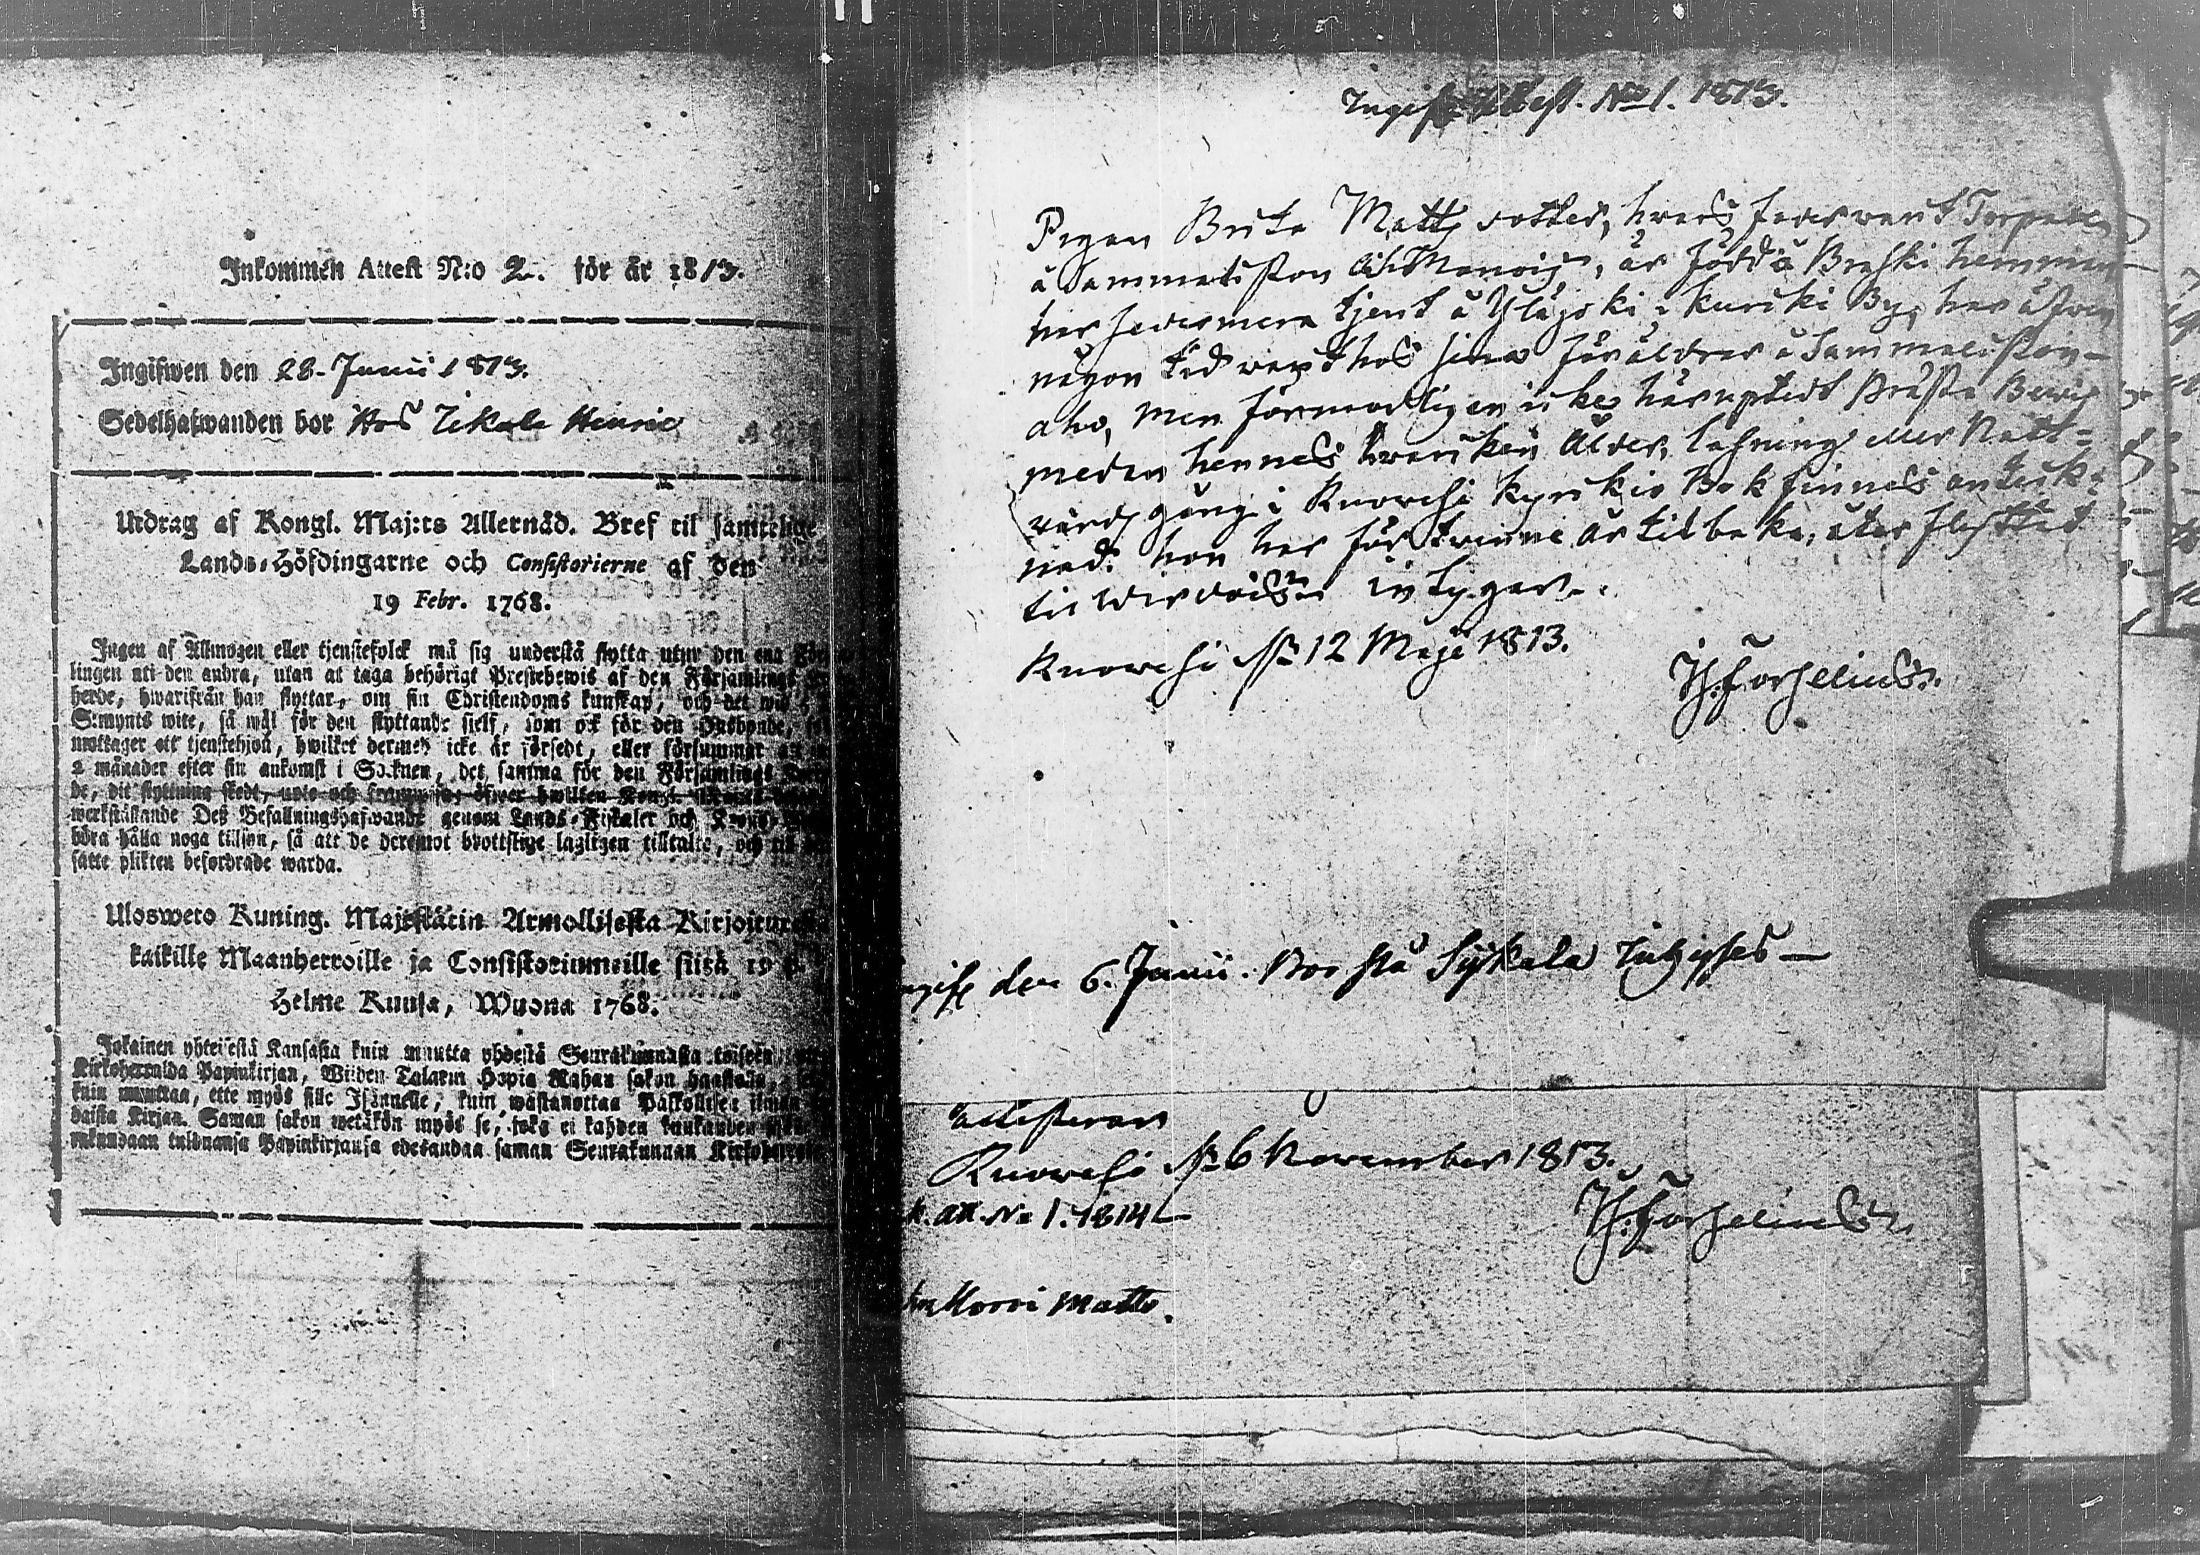 Inkommen Attest N:o 2. för år 1813.
Ingifwen den 28. Junii 1813.
Sedelhafwanden bor Hos Henric
Utdrag af Kongl. Maj:ts Allernåd. Bref til samtelige
Lands-Höfdingarne och Consistorierne af den
19 Febr. 1768.
Ingen af Allmogen eller tjenstefolck må sig understå flytta utur den ena
lingen uti den andra, utan at taga behörigt Prestebewis af den Församlings
herde, hwarifrån han flyttar, om sin Christendoms kunskap, och det wid
S:mynts wite, så wäl för den flyttande sjelf, som ock för den Husbonde,
mottager ett tjenstehjon, hwilket dermed icke är försedt, eller försummar
2 månader efter sin ankomst i Socknen, det samma för den Församlings
de, dit flyttning skedt, upte och framwisa; öfwer hwilken Kongl.
werkställande Deß Befallningshafwande genom Lands-Fiskaler och
böra hålla noga tillsyn, så att de deremot brottslige lagligen tilltalte, och til
satte plikten befordrade warda.
Ulosweto Kuning. Majestätin Armollisesta Kirjoituxesta
kaikille Maanherroille ja Consistoriumeille siitä 19 p.
Helme Kuusa, Wuona 1768.
Jokainen yhteisestä Kansasta kuin muutta yhdestä Seurakunnasta toiseen,
Kirkoherralda Papinkirjan, Wiiden Talarin Hopia Rahan sakon haastolla,
kuin muuttaa, ette myös sille Isännelle, kuin wastanottaa Palkollisen ilman
daista Kirjaa. Saman sakon wetäkön myös se, joka ei kahden kuukauden
rakundaan tulduansa Papinkirjansa edesandaa saman Seurakunnan Kirkoherralle
Attest. No 1. 1813.
Pigan Brita Matts dotter, hvars fader varit Torpare
å Sammaliston är född å Braski hemman
har sedermera tjent å i Kurcki By, har äfven
någon tid warit hos sina föräldrar å Sammaliston-
aho, men förmodligen icke häruptedt Prästa Bewis
medan hennes hwarken ålder, läsning eller Natt=
vards gång i Ruovesi kyrkio Bok finnes anteck=
nad. hon har för tvenne år tilbaka, åter flyttat
til Wirdois; intygar.
Ruovesi d. 12 Maji 1813.
H. Forselius.
den 6. Junii. Bor på Sykala
attesterar
Ruovesi d. 6 November 1813.
att. No 1. 1814
H. Forselius
Matts.